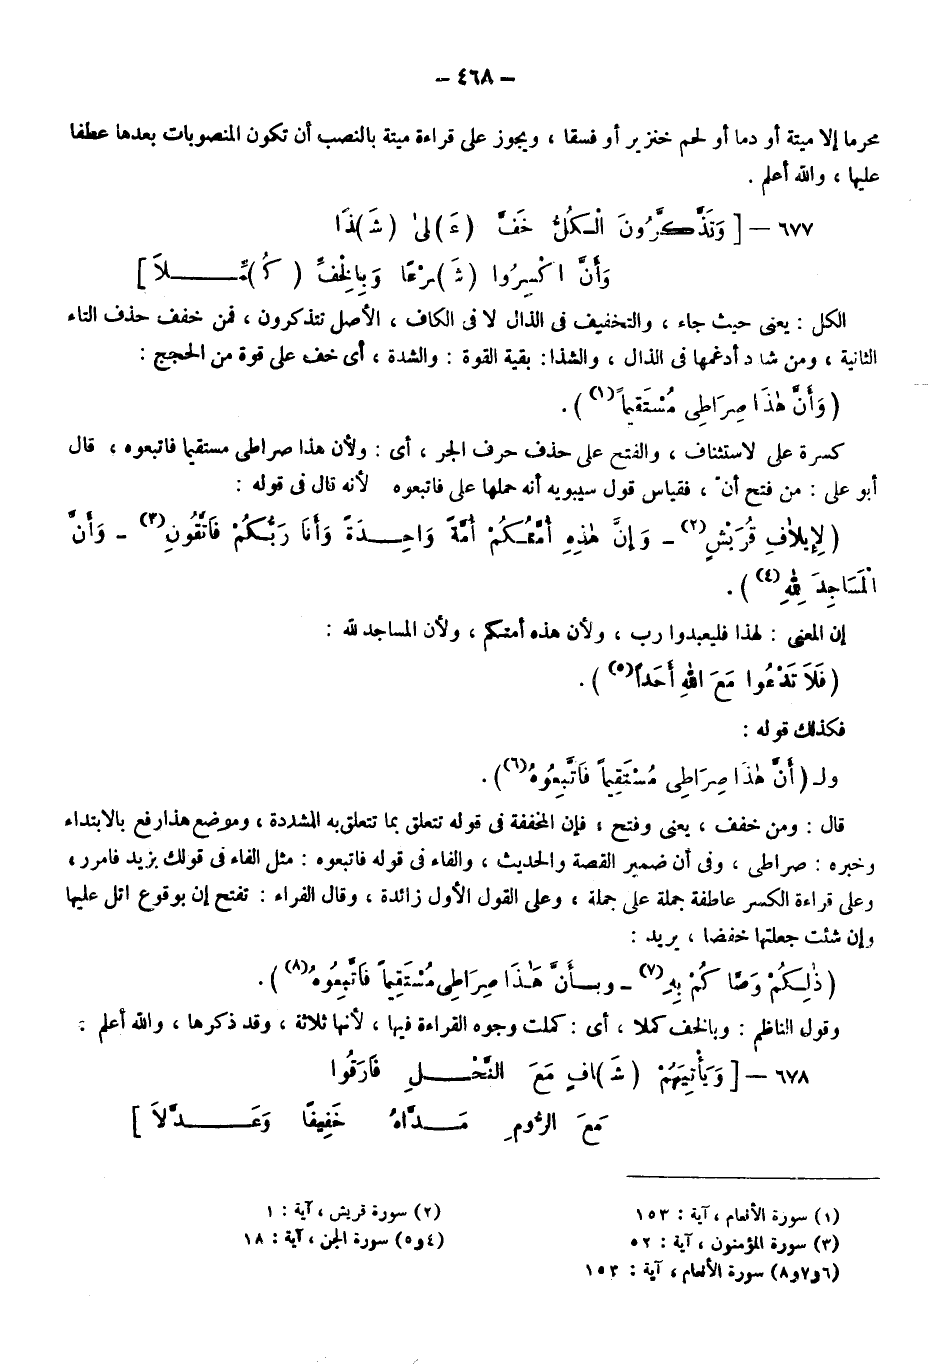 – ٤٦٨ –
محرما إلا ميتة أو دما أو لحم خنزير أو فسقا ، ويجوز على قراءة ميتة بالنصب أن تكون المنصوبات بعدها عطفا
عليها ، والله أعلم .
٦٧٧ — [ وَتَذَّكَّرُونَ الْكُلُّ خَفَّ (عَـ)لَىٰ (شَـ)ذَا
وَأَنَّ اكْسِرُوا (شَـ)رْعًا وَبِالْخَفِّ (كُـ)مِّـلاَ ]
الكل : يعنى حيث جاء ، والتخفيف فى الذال لا فى الكاف ، الأصل تتذكرون ، فمن خفف حذف التاء
الثانية ، ومن شدد أدغمها فى الذال ، والشذا: بقية القوة : والشدة ، أى خف على قوة من الحجج :
( وَأَنَّ هٰذَا صِرَاطِى مُسْتَقِيماً (١) ) .
كسرة على لاستئناف ، والفتح على حذف حرف الجر ، أى : ولأن هذا صراطى مستقيما فاتبعوه ، قال
أبو على : من فتح أنّ ، فقياس قول سيبويه أنه حملها على فاتبعوه لأنه قال فى قوله :
( لِإِيلاَفِ قُرَيْشٍ (٢) – وَإِنَّ هٰذِهِ أُمَّتُكُمْ أُمَّةً وَاحِـدَةً وَأَنَا رَبُّكُمْ فَاتَّقُونِ (٣) – وَأَنَّ
الْمَسَاجِدَ لِلهِ (٤) ) .
إن المعنى : لهذا فليعبدوا رب ، ولأن هذه أمتكم ، ولأن المساجد لله :
( فَلاَ تَدْعُوا مَعَ اللهِ أَحَداً (٥) ) .
فكذلك قوله :
ولـ ( أَنَّ هٰذَا صِرَاطِى مُسْتَقِيماً فَاتَّبِعُوهُ (٦) ) .
قال : ومن خفف ، يعنى وفتح ، فإن المخففة فى قوله تتعلق بما تتعلق به المشددة ، وموضع هذا رفع بالابتداء
وخبره : صراطى ، وفى أن ضمير القصة والحديث ، والفاء فى قوله فاتبعوه : مثل الفاء فى قولك بزيد فامرر ،
وعلى قراءة الكسر عاطفة جملة على جملة ، وعلى القول الأول زائدة ، وقال الفراء : تفتح إن بوقوع اتل عليها
وإن شئت جعلتها خفضا ، يريد :
( ذٰلِكُمْ وَصَّا كُمْ بِهِ (٧) – وبـأَنَّ هَـٰذَا صِرَاطِى مُسْتَقِيماً فَاتَّبِعُوهُ (٨) ) .
وقول الناظم : وبالخف كملا ، أى : كملت وجوه القراءة فيها ، لأنها ثلاثة ، وقد ذكرها ، والله أعلم :
٦٧٨ — [ وَيَأْتِيَهُمْ (شَـ)افٍ مَعَ النَّحْـلِ فَارَقُوا
مَعَ الرُّومِ مَـدَّاهُ خَفِيفًا وَعَـدَّلاَ ]
(١) سورة الأنعام ، آية : ١٥٣
(٢) سورة قريش ، آية : ١
(٣) سورة المؤمنون ، آية : ٥٢
(٤و٥) سورة الجن ، آية : ١٨
(٦و٧و٨) سورة الأنعام ، آية : ١٥٣